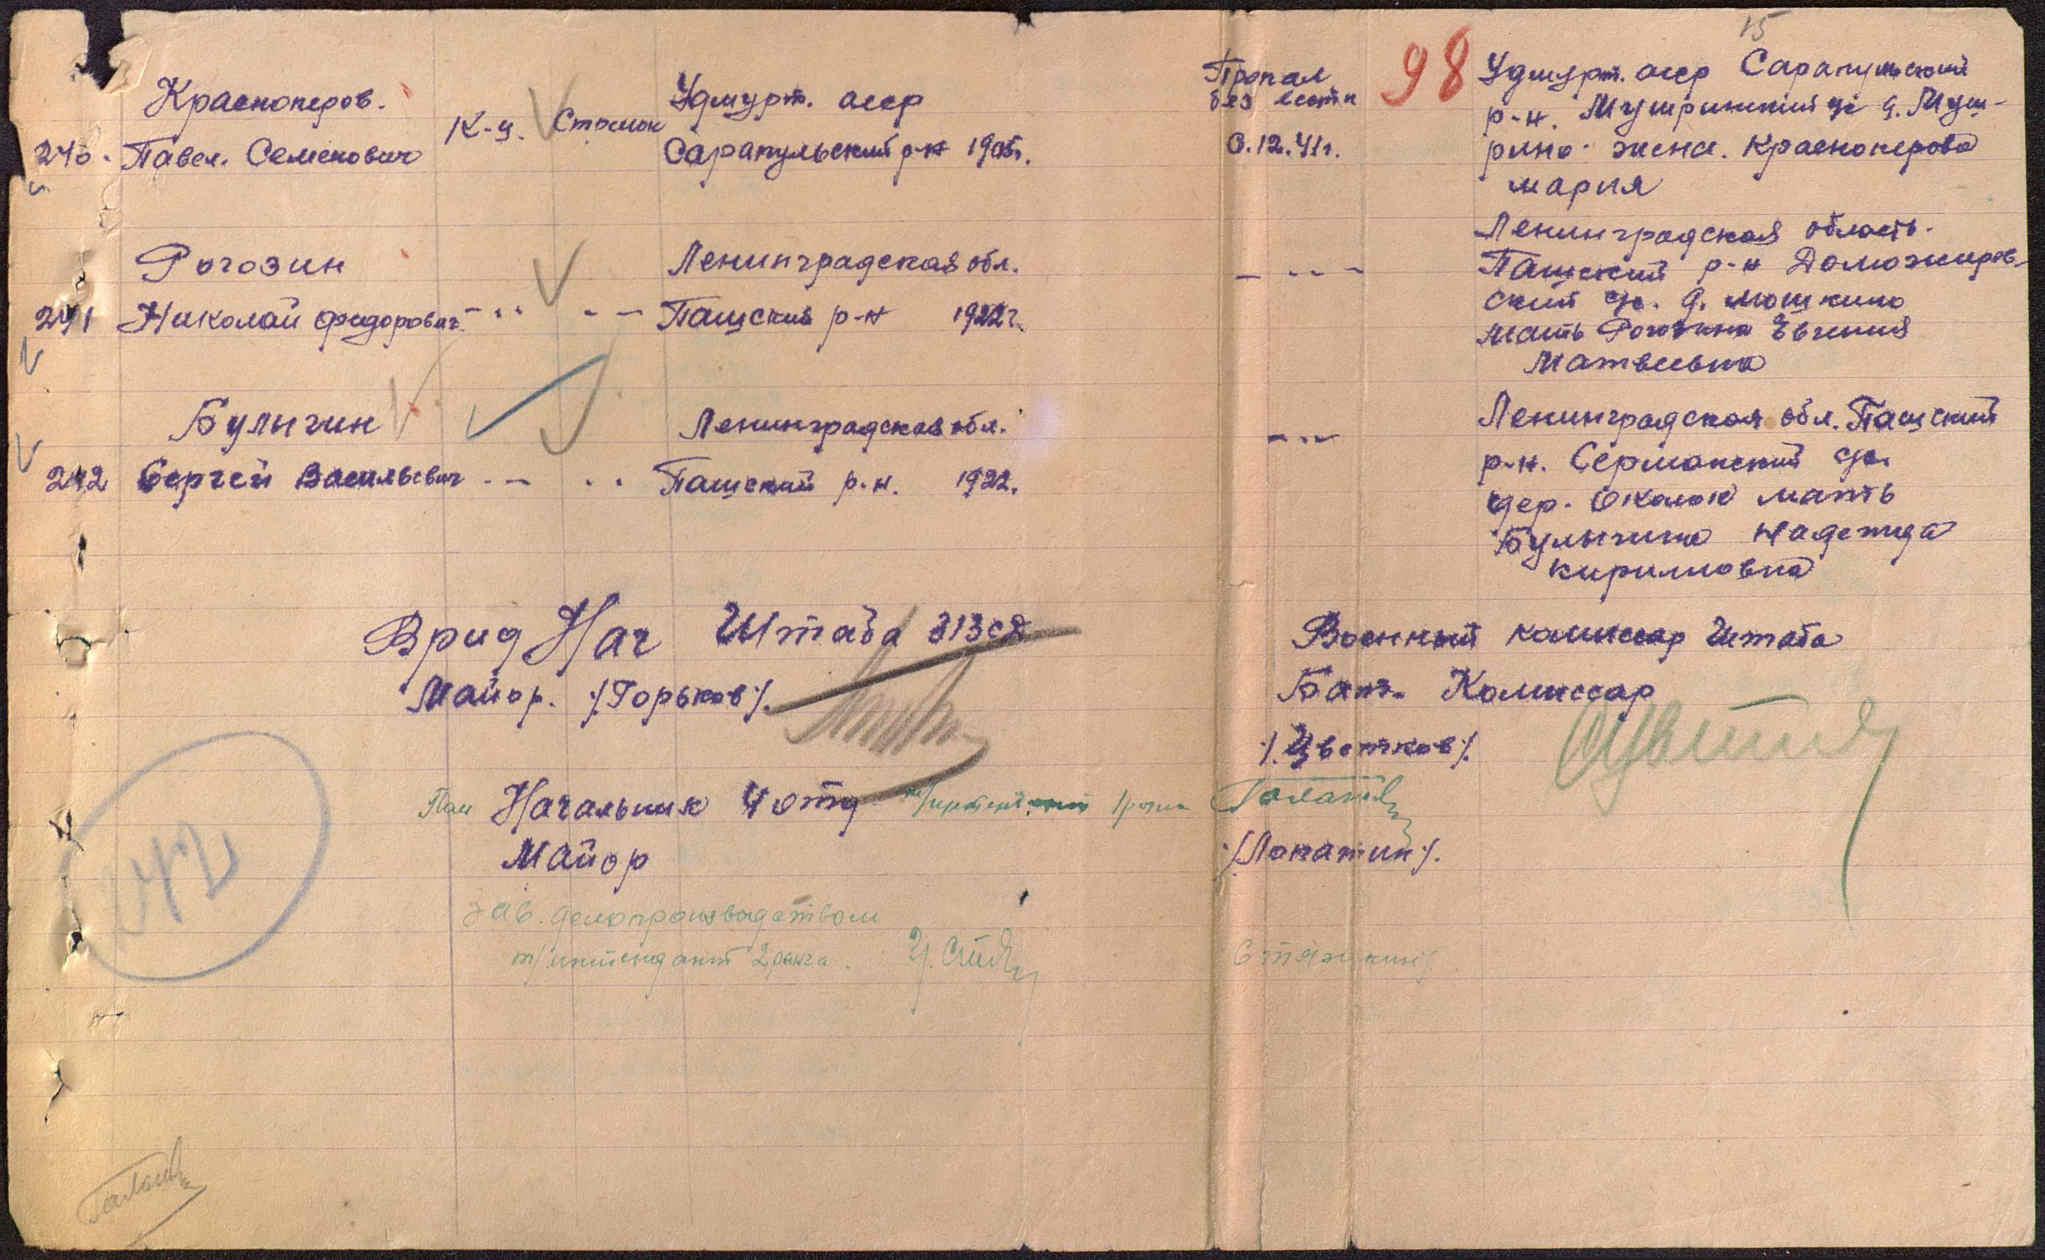 15
98
Красноперов.
240. Павел. Семенович
К-ц. Стрелок
Удмурт. асср
Сарапульский р-н 1905г.
Пропал
без вести
0.12.41г.
Удмурт. асср Сарапульский
р-н. Мушринский с/с д. Муш-
рино. жена. Красноперова
мария
Рогозин
241 Николай Федорович -..- ..-
Ленинградская обл.
Пашский р-н 1922г.
- .. -
Ленинградская область.
Пашский р-н Доможиров-
ский с/с. д. мошкино
мать Рогозина Евгения
Матвеевна
Булыгин
242 Сергей Васильевич -..- ..
Ленинградская обл.
Пашский р.н. 1922.
-..-
Ленинградская обл. Пашский
р-н. Серманский с/с.
дер. Околок мать
Булыгина Надежда
кириловна
Врид Нач Штаба 313сд
Майор. /Горьков/.
Военный комиссар Штаба
Бат. Комиссар
/.Цветков/.
Пом Начальник 4 отд
Майор
/Лопатин/.
242
Зав. делопроизводством
т/интендант 2 ранга.